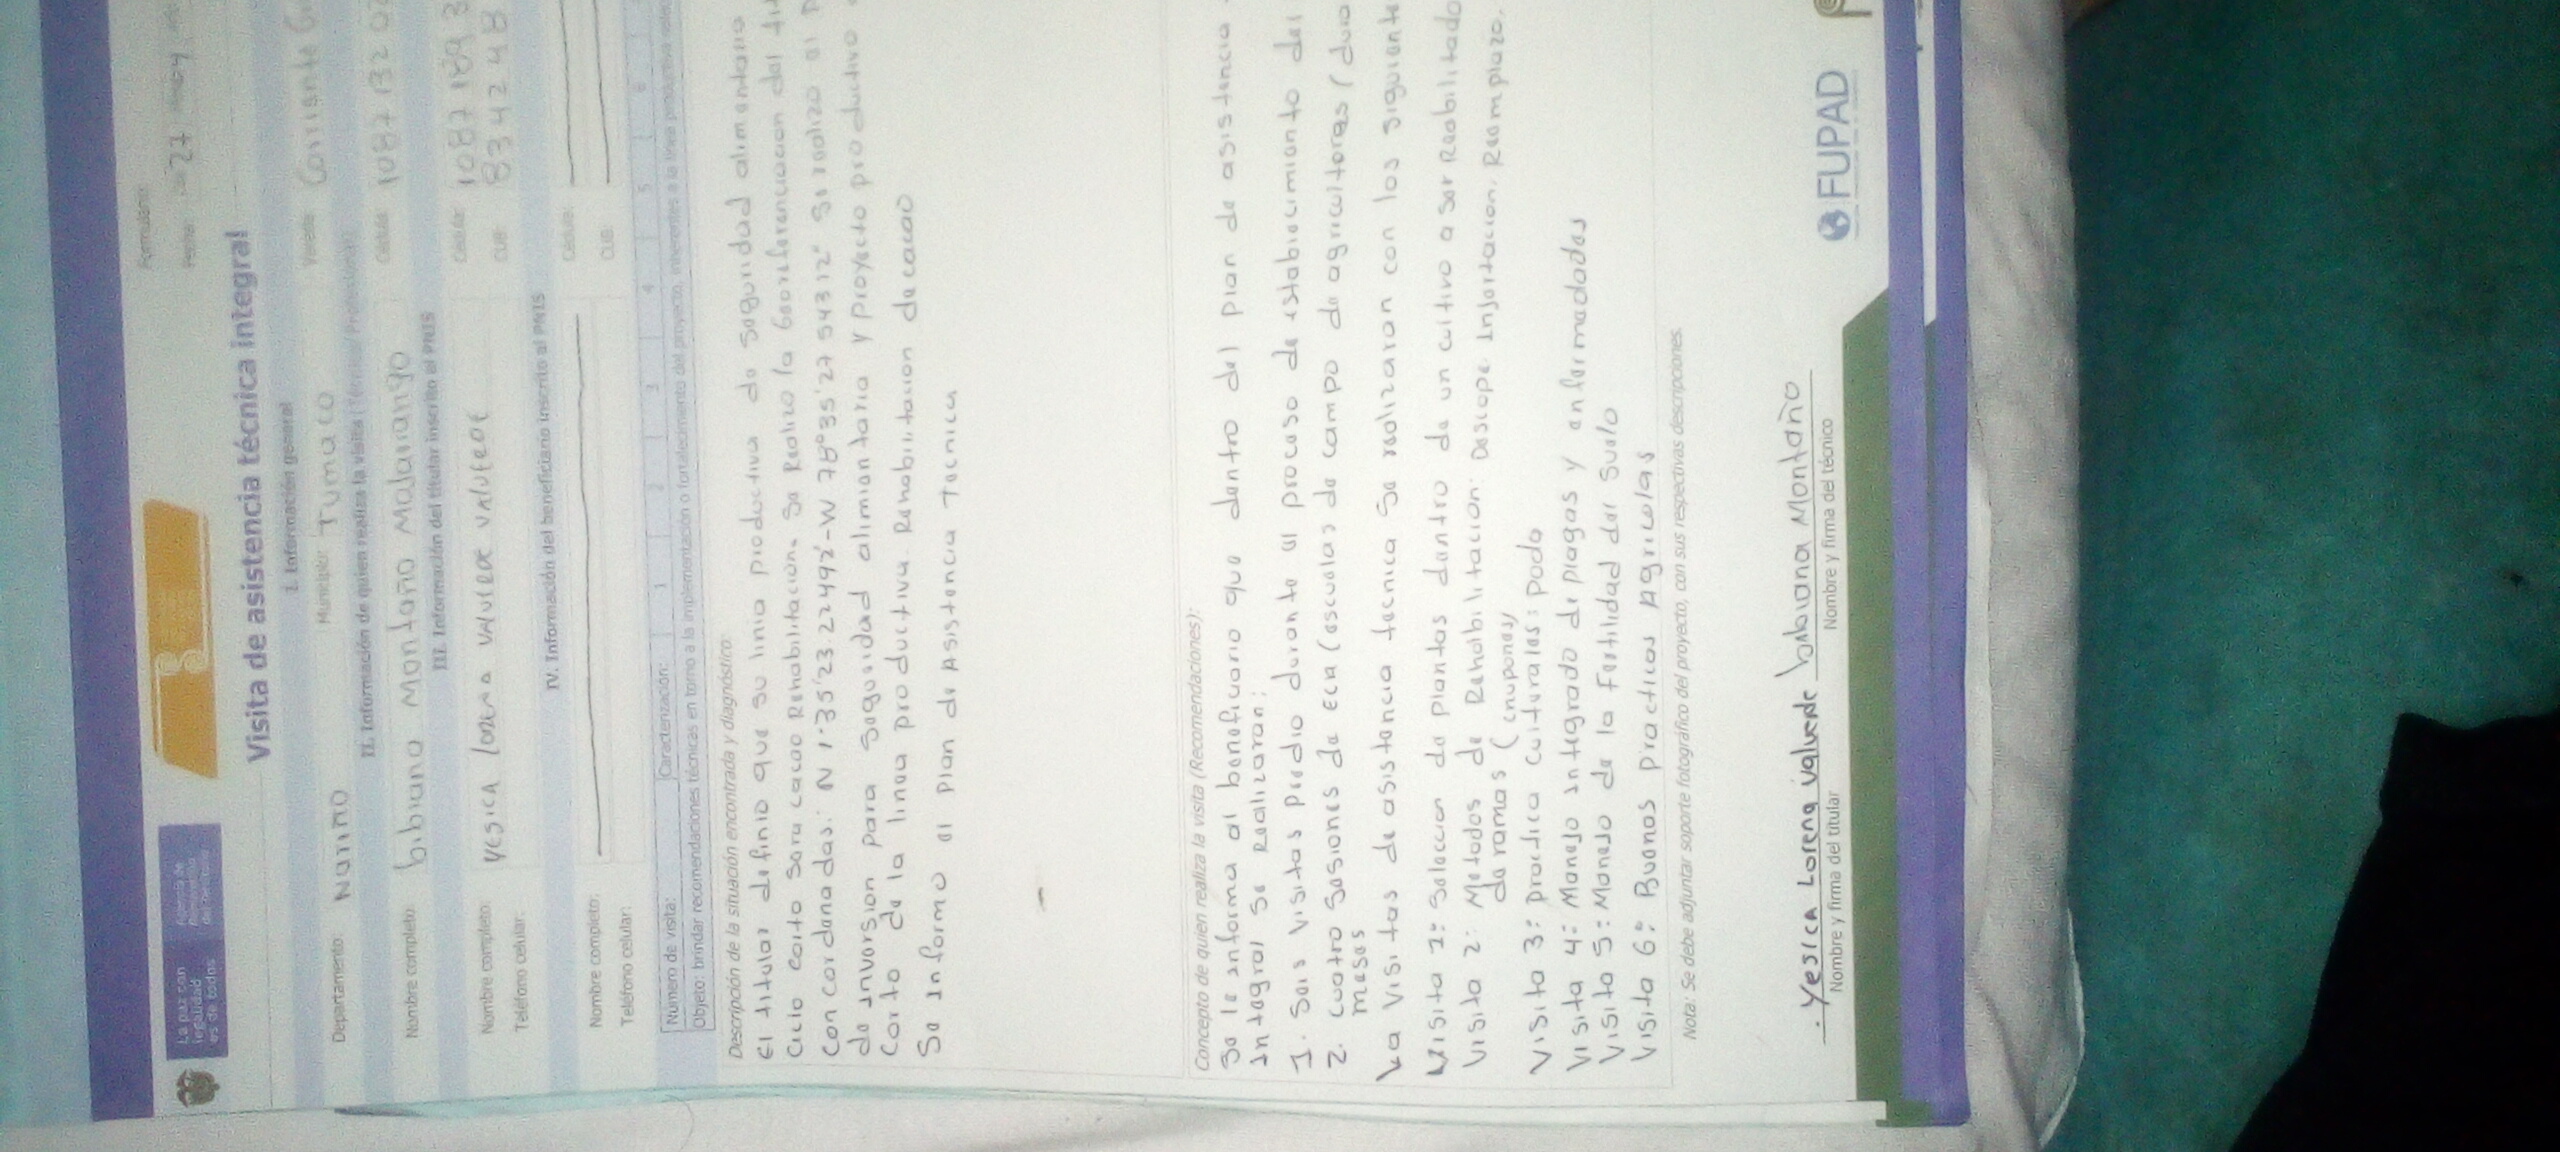 La paz con
legalidad
es de todos
Formulario:
Fecha: 27
Visita de asistencia técnica integral
I. Información general
Departamento: Nariño Municipio: Tumaco Vereda: Corriente
II. Información de quien realiza la visita (Técnico/Profesional)
Nombre completo: bibiana Montaño Cédula: 10871320
III. Información del titular inscrito el PNIS
Nombre completo: YESICA lorena valverde valverde Cédula: 10871893
Teléfono celular: CUB: 8334248
IV. Información del beneficiario inscrito al PNIS
Nombre completo: Cédula:
Teléfono celular: CUB:
Número de visita: Caracterización: 1 2 3 4 5 6
Objeto: brindar recomendaciones técnicas en torno a la implementación o fortalecimiento del proyecto, inherentes a la línea productiva
Descripción de la situación encontrada y diagnóstico:
El titular definio que su linia productiva de seguridad alimentaria
Ciclo corto sera cacao Rehabilitación. Se Realizo la Georeferenciacion del
con cordenadas: N 1°35'23.22492'-W 78°35'27.54312" Se realizo el
de inversion para seguridad alimentaria y proyecto productivo
corto de la linea productiva Rehabilitacion de cacao
Se informo el plan de Asistencia Tecnica
Concepto de quien realiza la visita (Recomendaciones):
Se le informa al beneficiario que dentro del plan de asistencia
integral se Realizaran:
1. Seis visitas predio durante el proceso de establecimiento del
2. cuatro sesiones de ECA (escuelas de campo de agricultores (
meses
La visitas de asistencia tecnica se realizaran con los siguiente
Visita 1: Seleccion de plantas dentro de un cultivo a ser Reabilitado
Visita 2: Metodos de Rehabilitacion: Descope Injertacion, Reemplazo.
de ramas (chupones)
Visita 3: practica culturales: poda
Visita 4: Manejo integrado de plagas y enfermadades
Visita 5: Manejo de la fertilidad del Suelo
Visita 6: Buenas practicas Agricolas
Nota: Se debe adjuntar soporte fotográfico del proyecto, con sus respectivas descripciones.
Yesica Lorena valverde bibiana Montaño
Nombre y firma del titular Nombre y firma del técnico
FUPAD